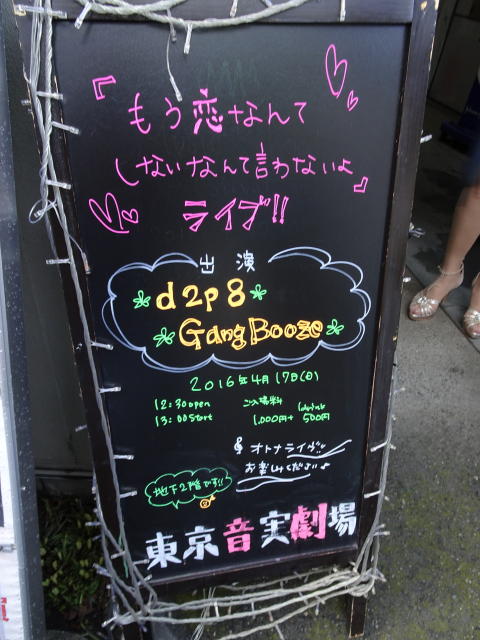 『もう恋なんて
しないなんて言わないよ』
ライブ!!
出演
d2p8
GangBooze
2016年4月17日(日)
12:30open ご入場料 1drink
13:00Start 1,000円+ 500円
オトナライヴ!!
お楽しみくださいよ
地下2階です!!
東京音実劇場